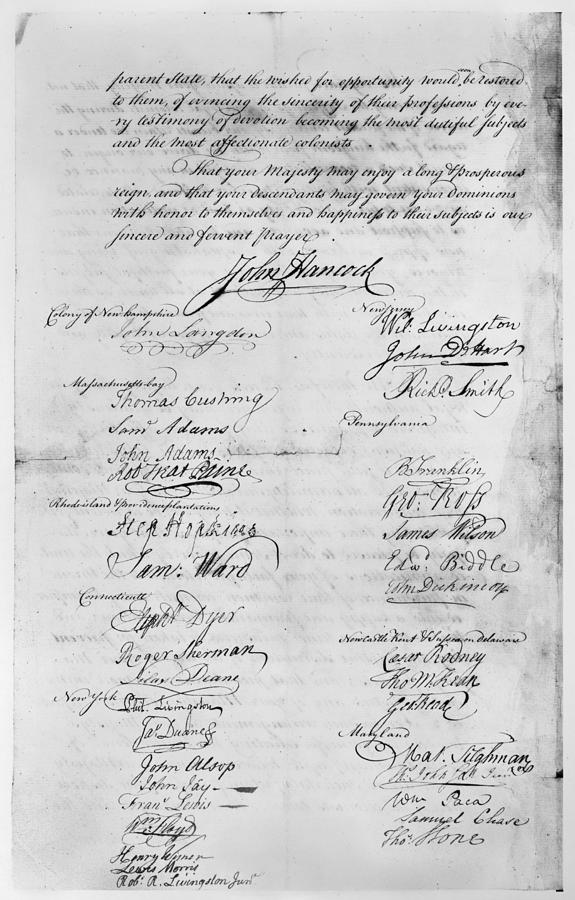 parent State, that the wished for opportunity would soon be restored
to them, of evincing the sincerity of their professions by eve-
ry testimony of devotion becoming the most dutiful subjects
and the most affectionate colonists.
That your Majesty may enjoy a long & prosperous
reign, and that your descendants may govern your Dominions
with honor to themselves and happiness to their subjects is our
sincere and fervent prayer.
John Hancock
Colony of New hampshire
John Langdon
Massachusetts-bay
Thomas Cushing
Saml. Adams
John Adams
Rob Treat Paine
Rhode island & providence plantations
Step Hopkins
Sam: Ward
Connecticutt
Elipht Dyer
Roger Sherman
Silas Deane
New York
Phil. Livingston
Jas. Duane
John Alsop
John Jay
Frans. Lewis
Wm. Floyd
Henry Wisner
Lewis Morris
Rob: R. Livingston Junr.
New Jersey
Wil: Livingston
John D Hart
Richd. Smith
Pennsylvania
B Franklin
Geo. Ross
James Wilson
Edwd. Biddle
John Dickinson
Newcastle Kent & Sussex on Delaware
Caesar Rodney
Tho M:Kean
Geo Read
Maryland
Mat. Tilghman
Ths. Johnson Junr.
Wm Paca
Samuel Chase
Thos. Stone